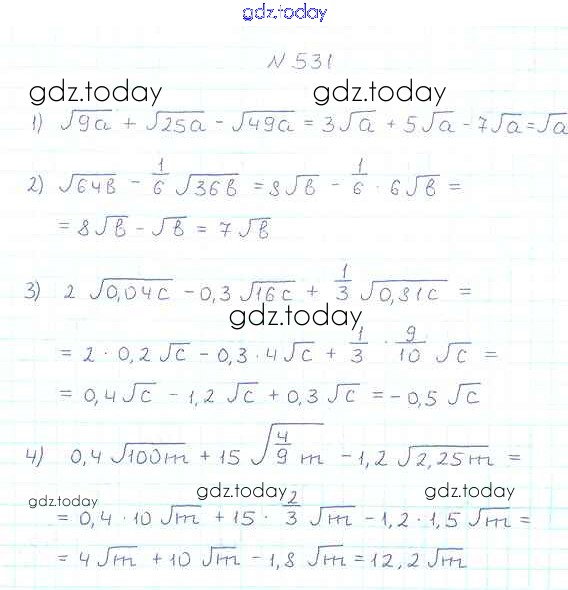 gdz.today
N 531
gdz.today gdz.today
1) √9a + √25a - √49a = 3√a + 5√a - 7√a = √a
2) √64в - 1/6 √36в = 8√в - 1/6 · 6√в =
= 8√в - √в = 7√в
3) 2 √0,04c - 0,3 √16c + 1/3 √0,81c =
gdz.today
= 2 · 0,2 √c - 0,3 · 4 √c + 1/3 · 9/10 √c =
= 0,4 √c - 1,2 √c + 0,3 √c = - 0,5 √c
4) 0,4 √100m + 15 √4/9 m - 1,2 √2,25m =
gdz.today gdz.today gdz.today
= 0,4 · 10 √m + 15 · 2/3 √m - 1,2 · 1,5 √m =
= 4 √m + 10 √m - 1,8 √m = 12,2 √m